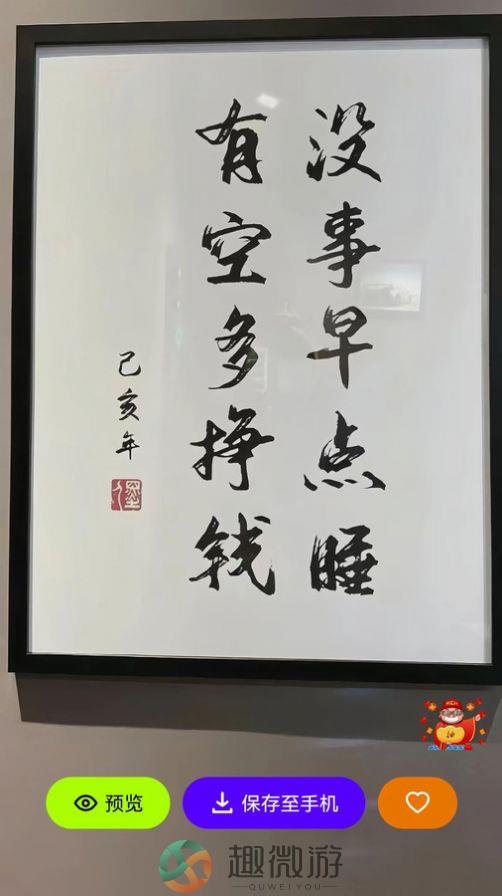 没事早点睡
有空多挣钱
己亥年
预览
保存至手机
趣微游
QUWEIYOU